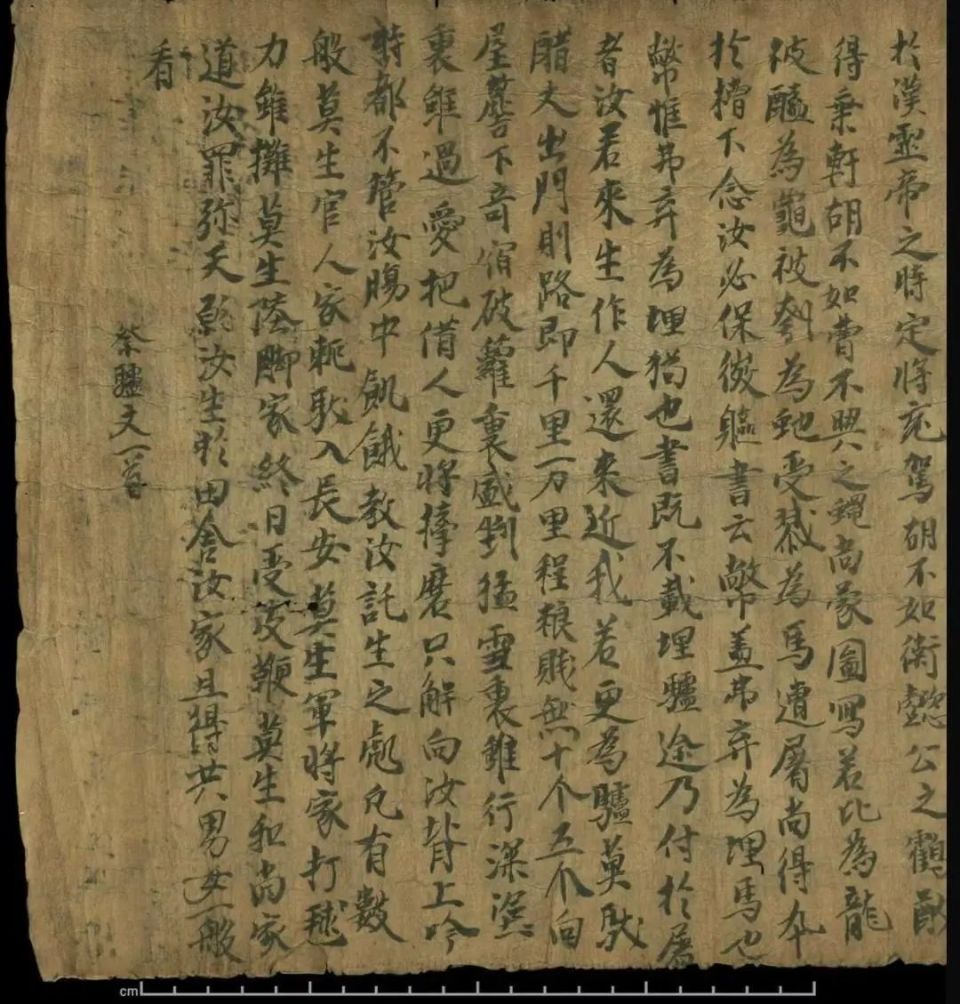 於漢靈帝之時定將充駕胡不如衛懿公之鶴猷
得乘軒胡不如曹不興之蠅尚蒙圖寫若比為龍
彼醢為龜被刳為虵受戮為馬遭屠尚得卒
於槽下念汝必保微軀書云弊盖弗弃為埋馬也
弊惟弗弃為埋狗也書既不載埋驢途乃付於屠
者汝若來生作人還來近我若更為驢莫馱
醋大出門則路即千里一万里程粮賤無十个五个向
屋簷下寄宿破蘿裏盛剉猛雪裏雖行深溼
裏雖過愛把借人更將擣磨只解向汝背上吟
詩都不管汝腸中飢餓教汝託生之處凡有數
般莫生官人家軛馱入長安莫生軍將家打毬
力雖攤莫生陸脚家終日受皮鞭莫生和尚家
道汝罪弥天願汝生於田舍汝家且得共男女一般
看
祭驢文一首
cm